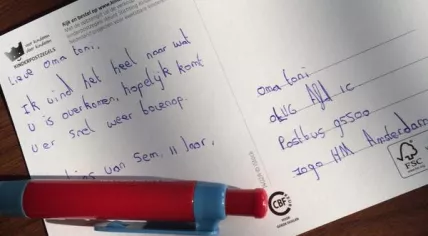 Kijk en bestel op www.kin
voor kinderen
door kinderen
KINDERPOSTZEGELS
Lieve Oma toni,
Ik vind het heel naar wat
u is overkomen, hopelijk komt
u er snel weer bovenop.
van Sem, 11 jaar.
oma toni
Afd 1C
Postbus 95500
1090 HM Amsterdam
CBF
FSC